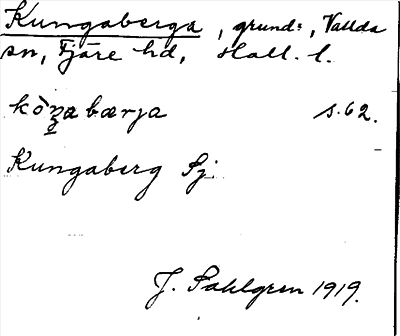 Kungaberga, grund:, Vallda
sn, Fjäre hd, Hall. l.
kòŋabærja s.62.
Kungaberg Sj.
J. Sahlgren 1919.